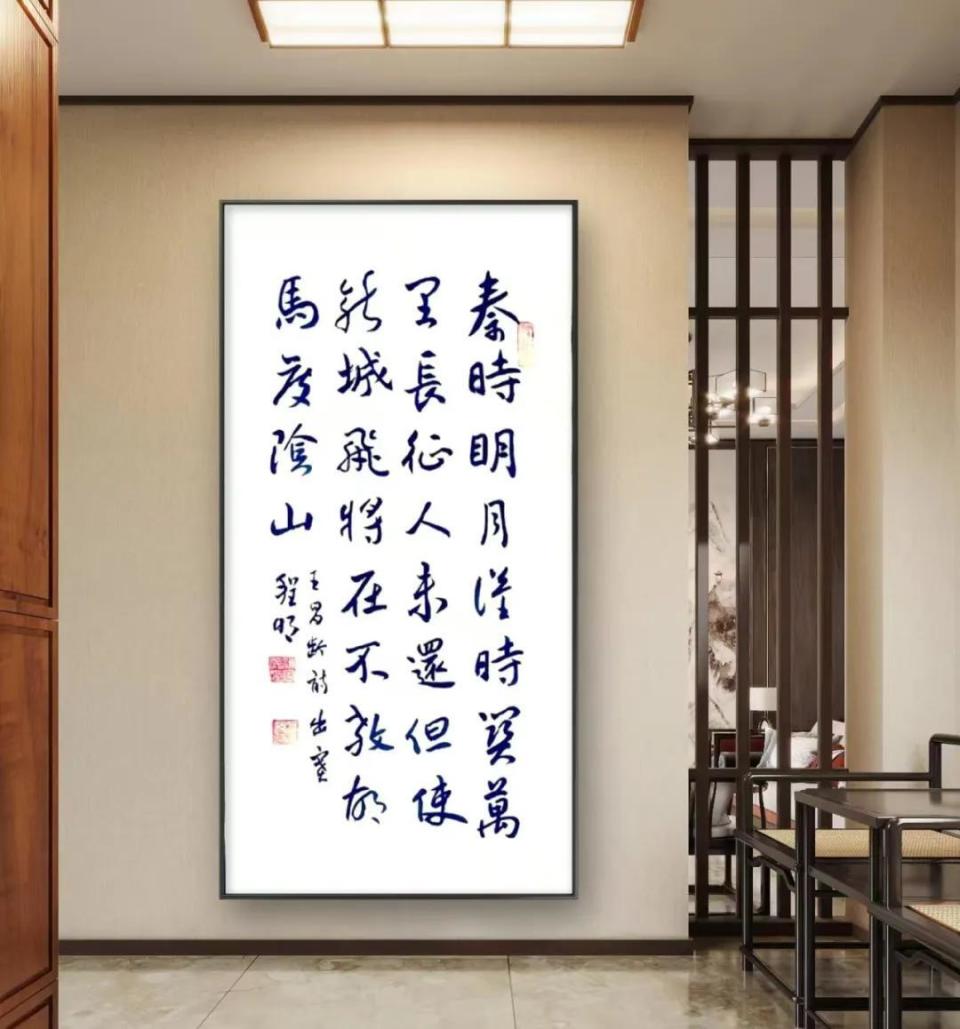 秦時明月漢時關萬
里長征人未還但使
龍城飛將在不教胡
馬度陰山
王昌齡詩出塞
程明